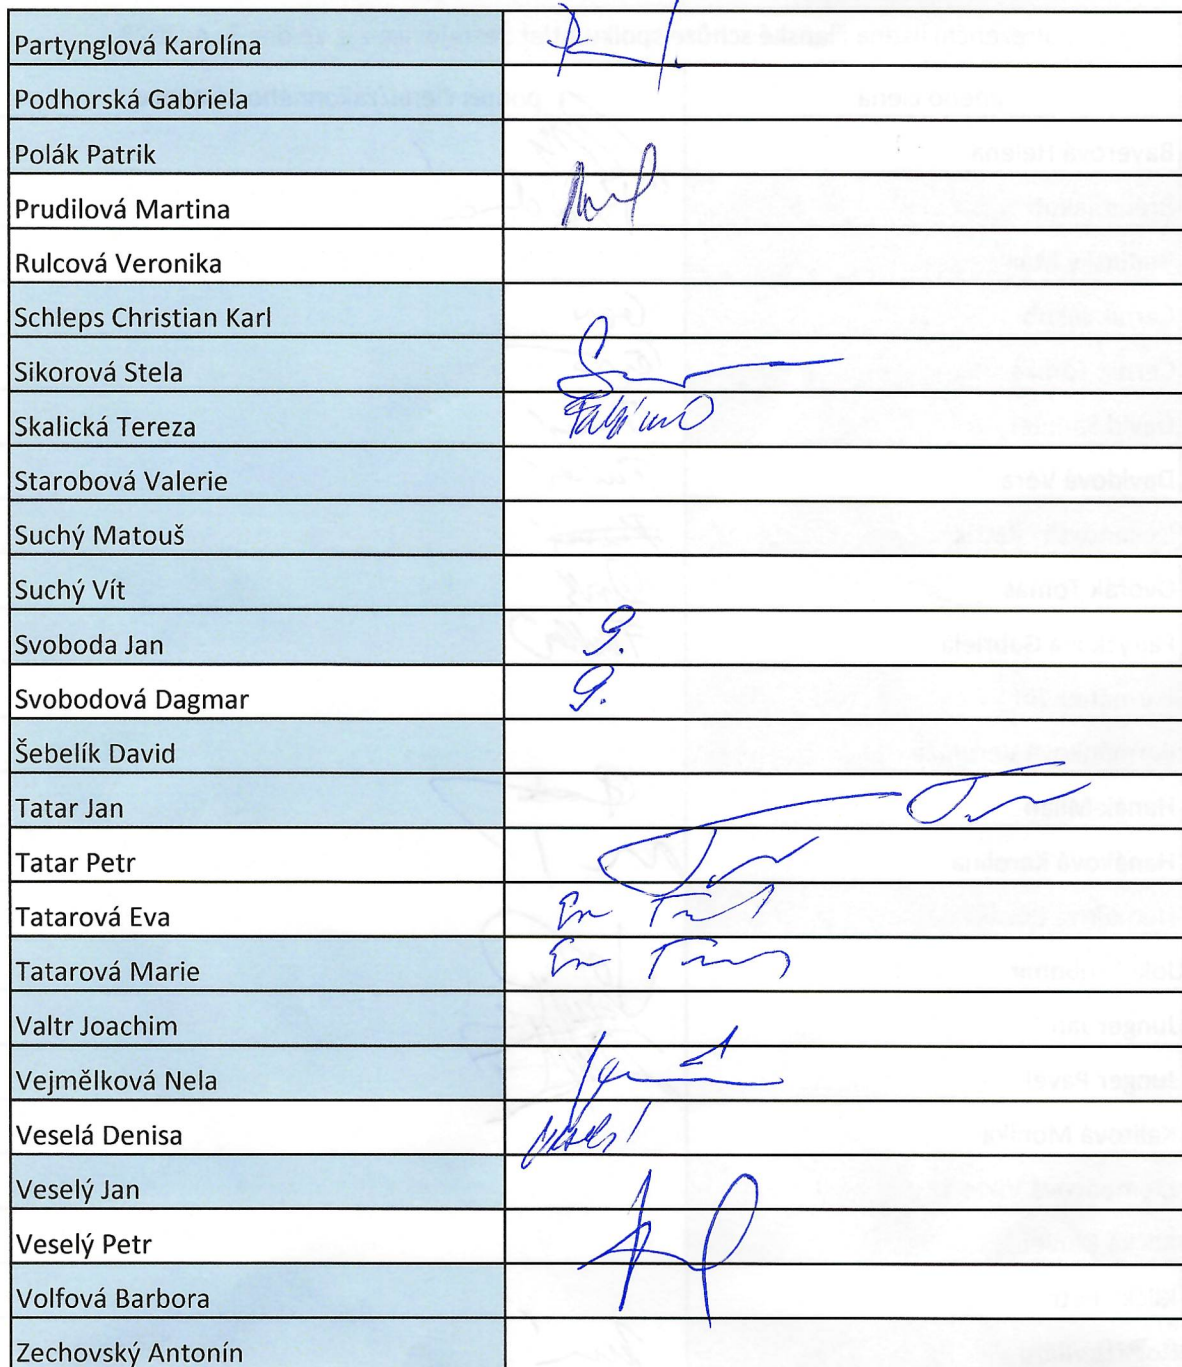 Partynglová Karolína
Podhorská Gabriela
Polák Patrik
Prudilová Martina
Rulcová Veronika
Schleps Christian Karl
Sikorová Stela
Skalická Tereza
Starobová Valerie
Suchý Matouš
Suchý Vít
Svoboda Jan
Svobodová Dagmar
Šebelík David
Tatar Jan
Tatar Petr
Tatarová Eva
Tatarová Marie
Valtr Joachim
Vejmělková Nela
Veselá Denisa
Veselý Jan
Veselý Petr
Volfová Barbora
Zechovský Antonín